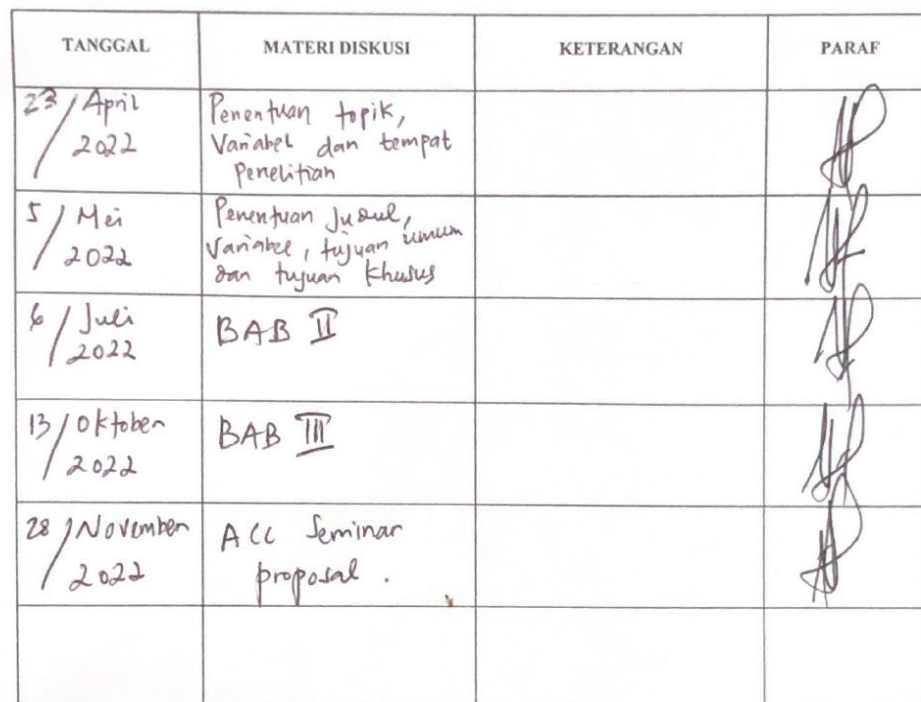 TANGGAL MATERI DISKUSI KETERANGAN PARAF
23 / April
2022
Penentuan topik,
Variabel dan tempat
Penelitian
5 / Mei
2022
Penentuan Judul,
Variabel, tujuan umum
dan tujuan khusus
6 / Juli
2022
BAB II
13 / Oktober
2022
BAB III
28 / November
2022
ACC Seminar
proposal .